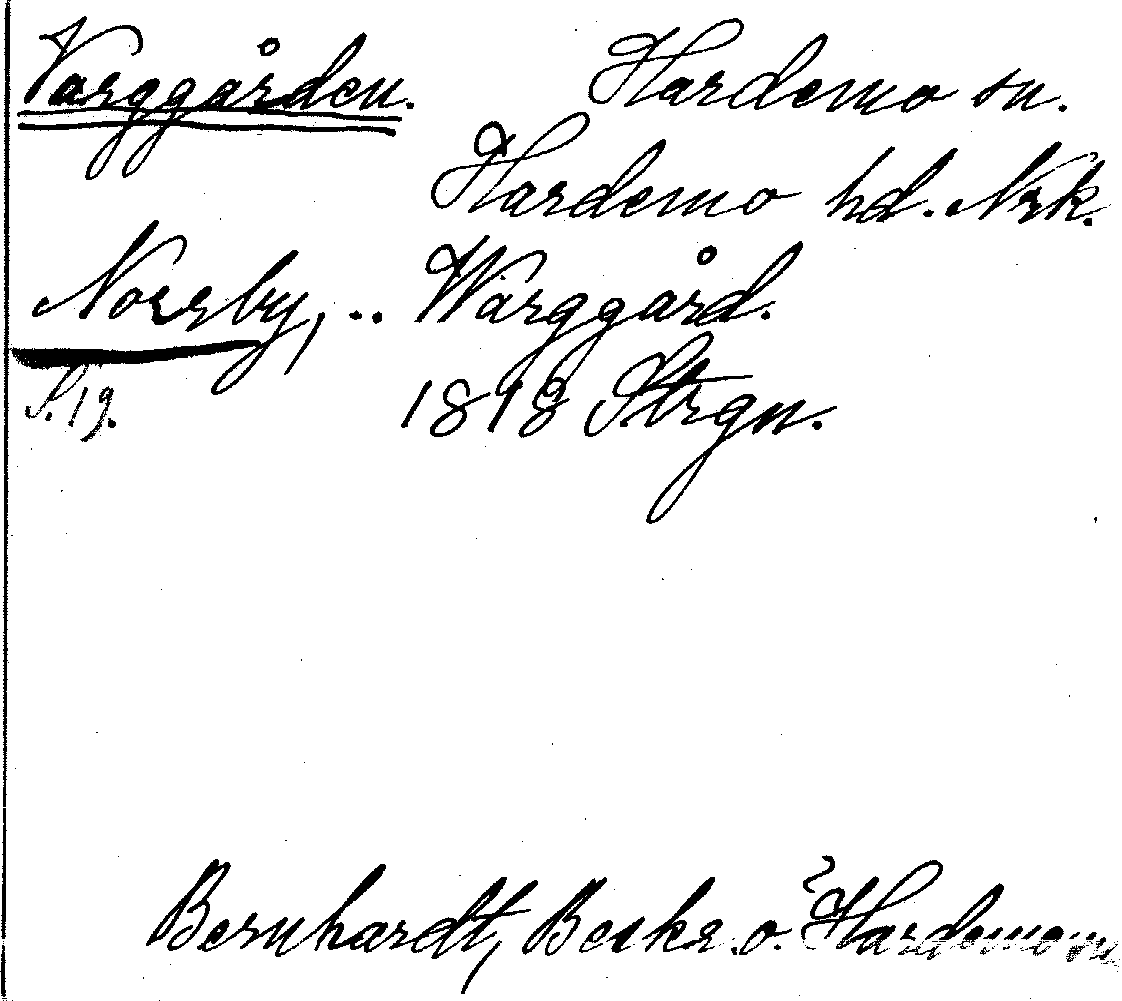 Varggården. Hardemo sn.
Hardemo hd. Nrk.
Norrby, .. Warggård.
S. 19. 1898 Strgn.
Bernhardt, Beskr. o. Hardemo sn